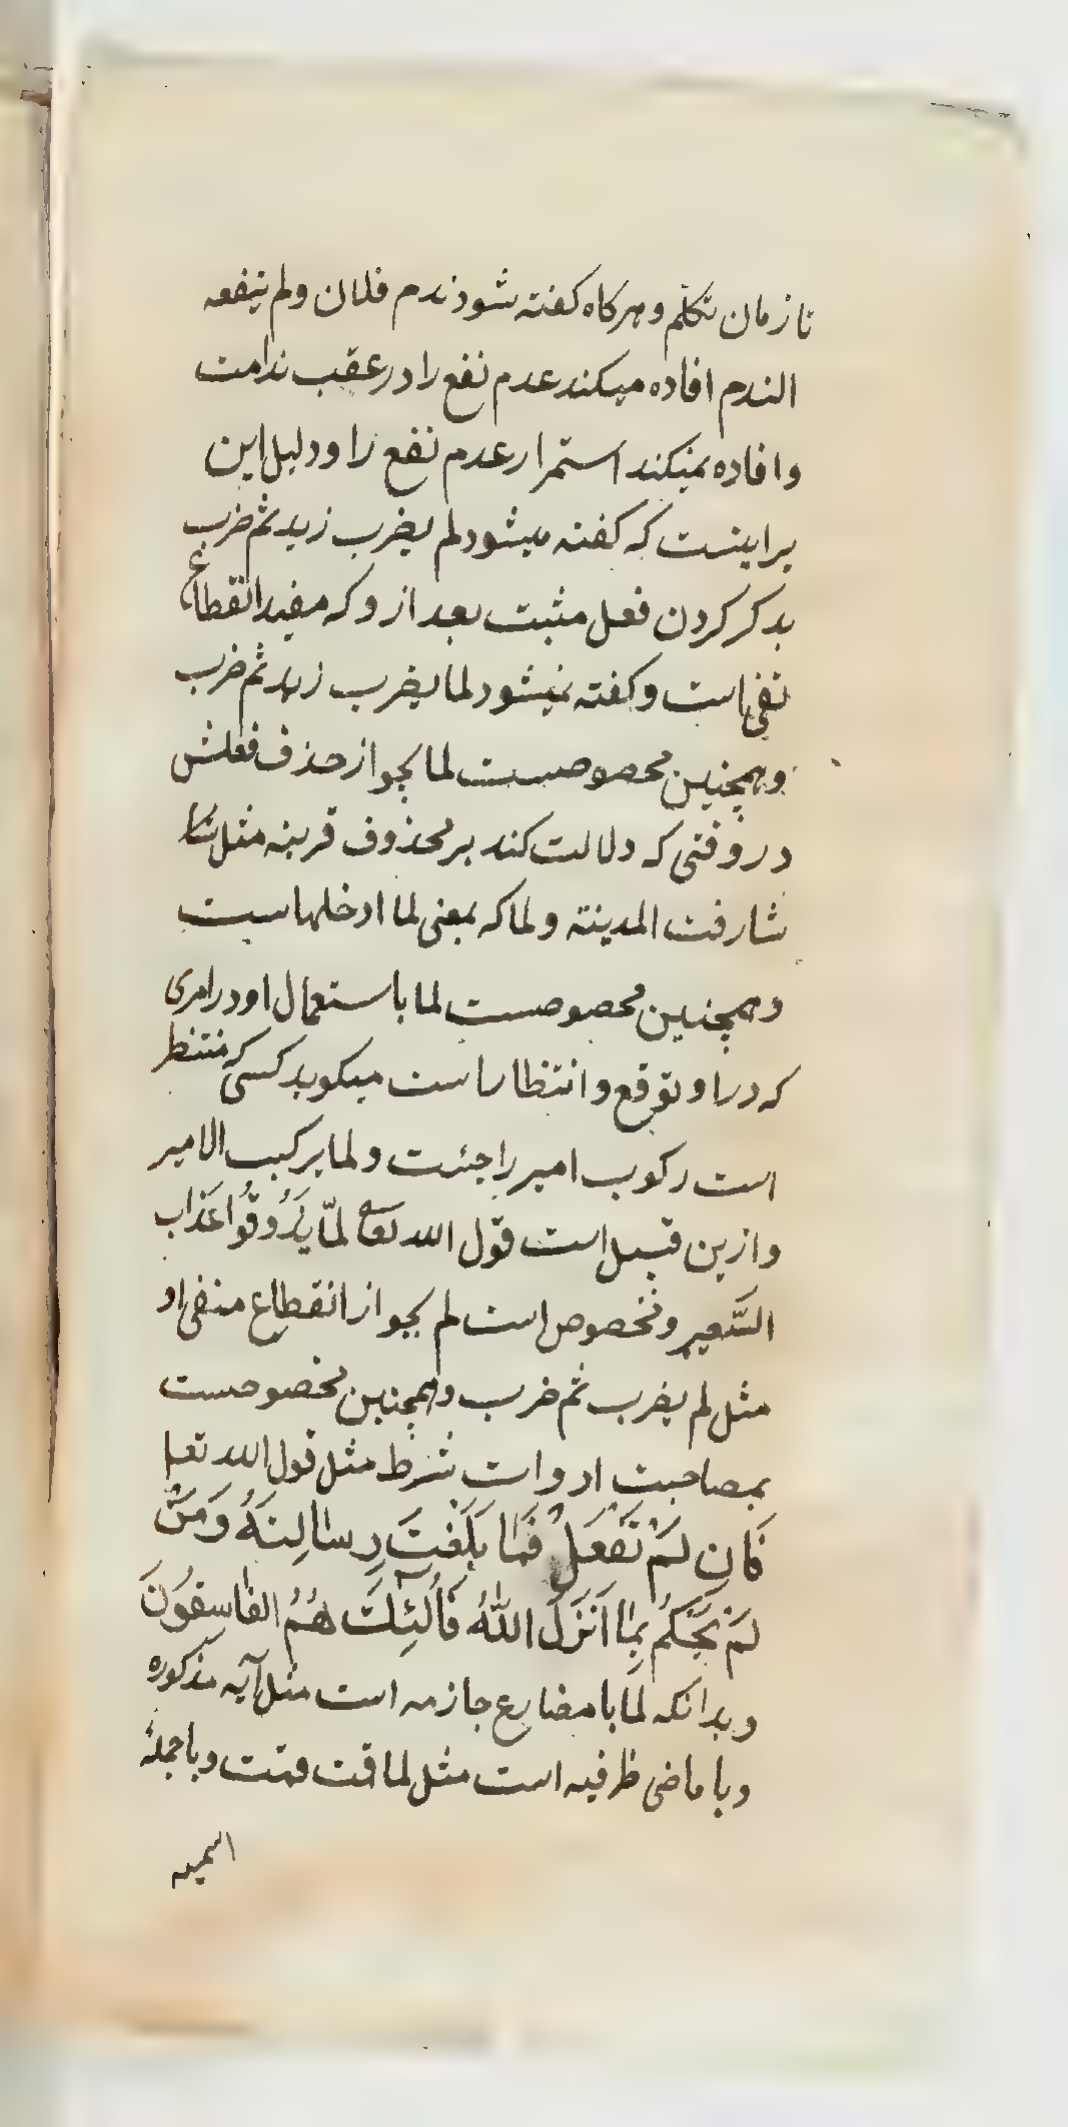 تا زمان تکلم و هرکاه کفته شود ندم فلان و لم ینفعه
الندم افاده میکند عدم نفع را در عقب ندامت
و افاده نمیکند استمرار عدم نفع را و دلیل این
براینست که کفته میشود لم یضرب زید ثم ضرب
بذکر کردن فعل مثبت بعد از و که مفید انقطاع
نفی است و کفته نمیشود لما یضرب زید ثم ضرب
و همچنین مخصوصست لما بجواز حذف فعلش
در وقتی که دلالت کند بر محذوف قرینه مثل
شارفت المدینته و لما که بمعنی لما ادخلها است
و همچنین مخصوصست لما باستعمال او در امری
که در او توقع و انتظار است میکوید کسی که منتظر
است رکوب امیر را جئت و لما یرکب الامیر
و ازین قبیل است قول الله تعا لمّا یَذُوقُوا عَذَاب
السَّعیرِ و مخصوص است لم بجواز انقطاع منفی او
مثل لم یضرب ثم ضرب و همچنین مخصوصست
بمصاحبت ادوات شرط مثل قول الله تعا
فَاِن لَمْ تَفْعَلْ فَمَا بَلَّغْتَ رِسٰالَتَهُ وَ مَنْ
لَمْ یَحْکُمْ بِمٰا اَنْزَلَ اللّٰهُ فَاُلٓئِکَ هُمُ الفٰاسِقُونَ
و بدانکه لما با مضارع جازمه است مثل آیه مذکوره
و با ماضی ظرفیه است مثل لما قت قمت و با جملهٔ
اسمیه